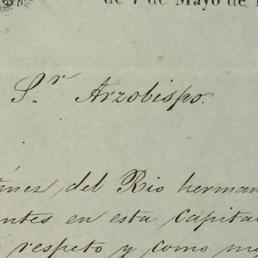 de 1 de Mayo de 1
S.r Arzobispo.
tinez del Rio herman
entes en esta Capital
respeto y como me